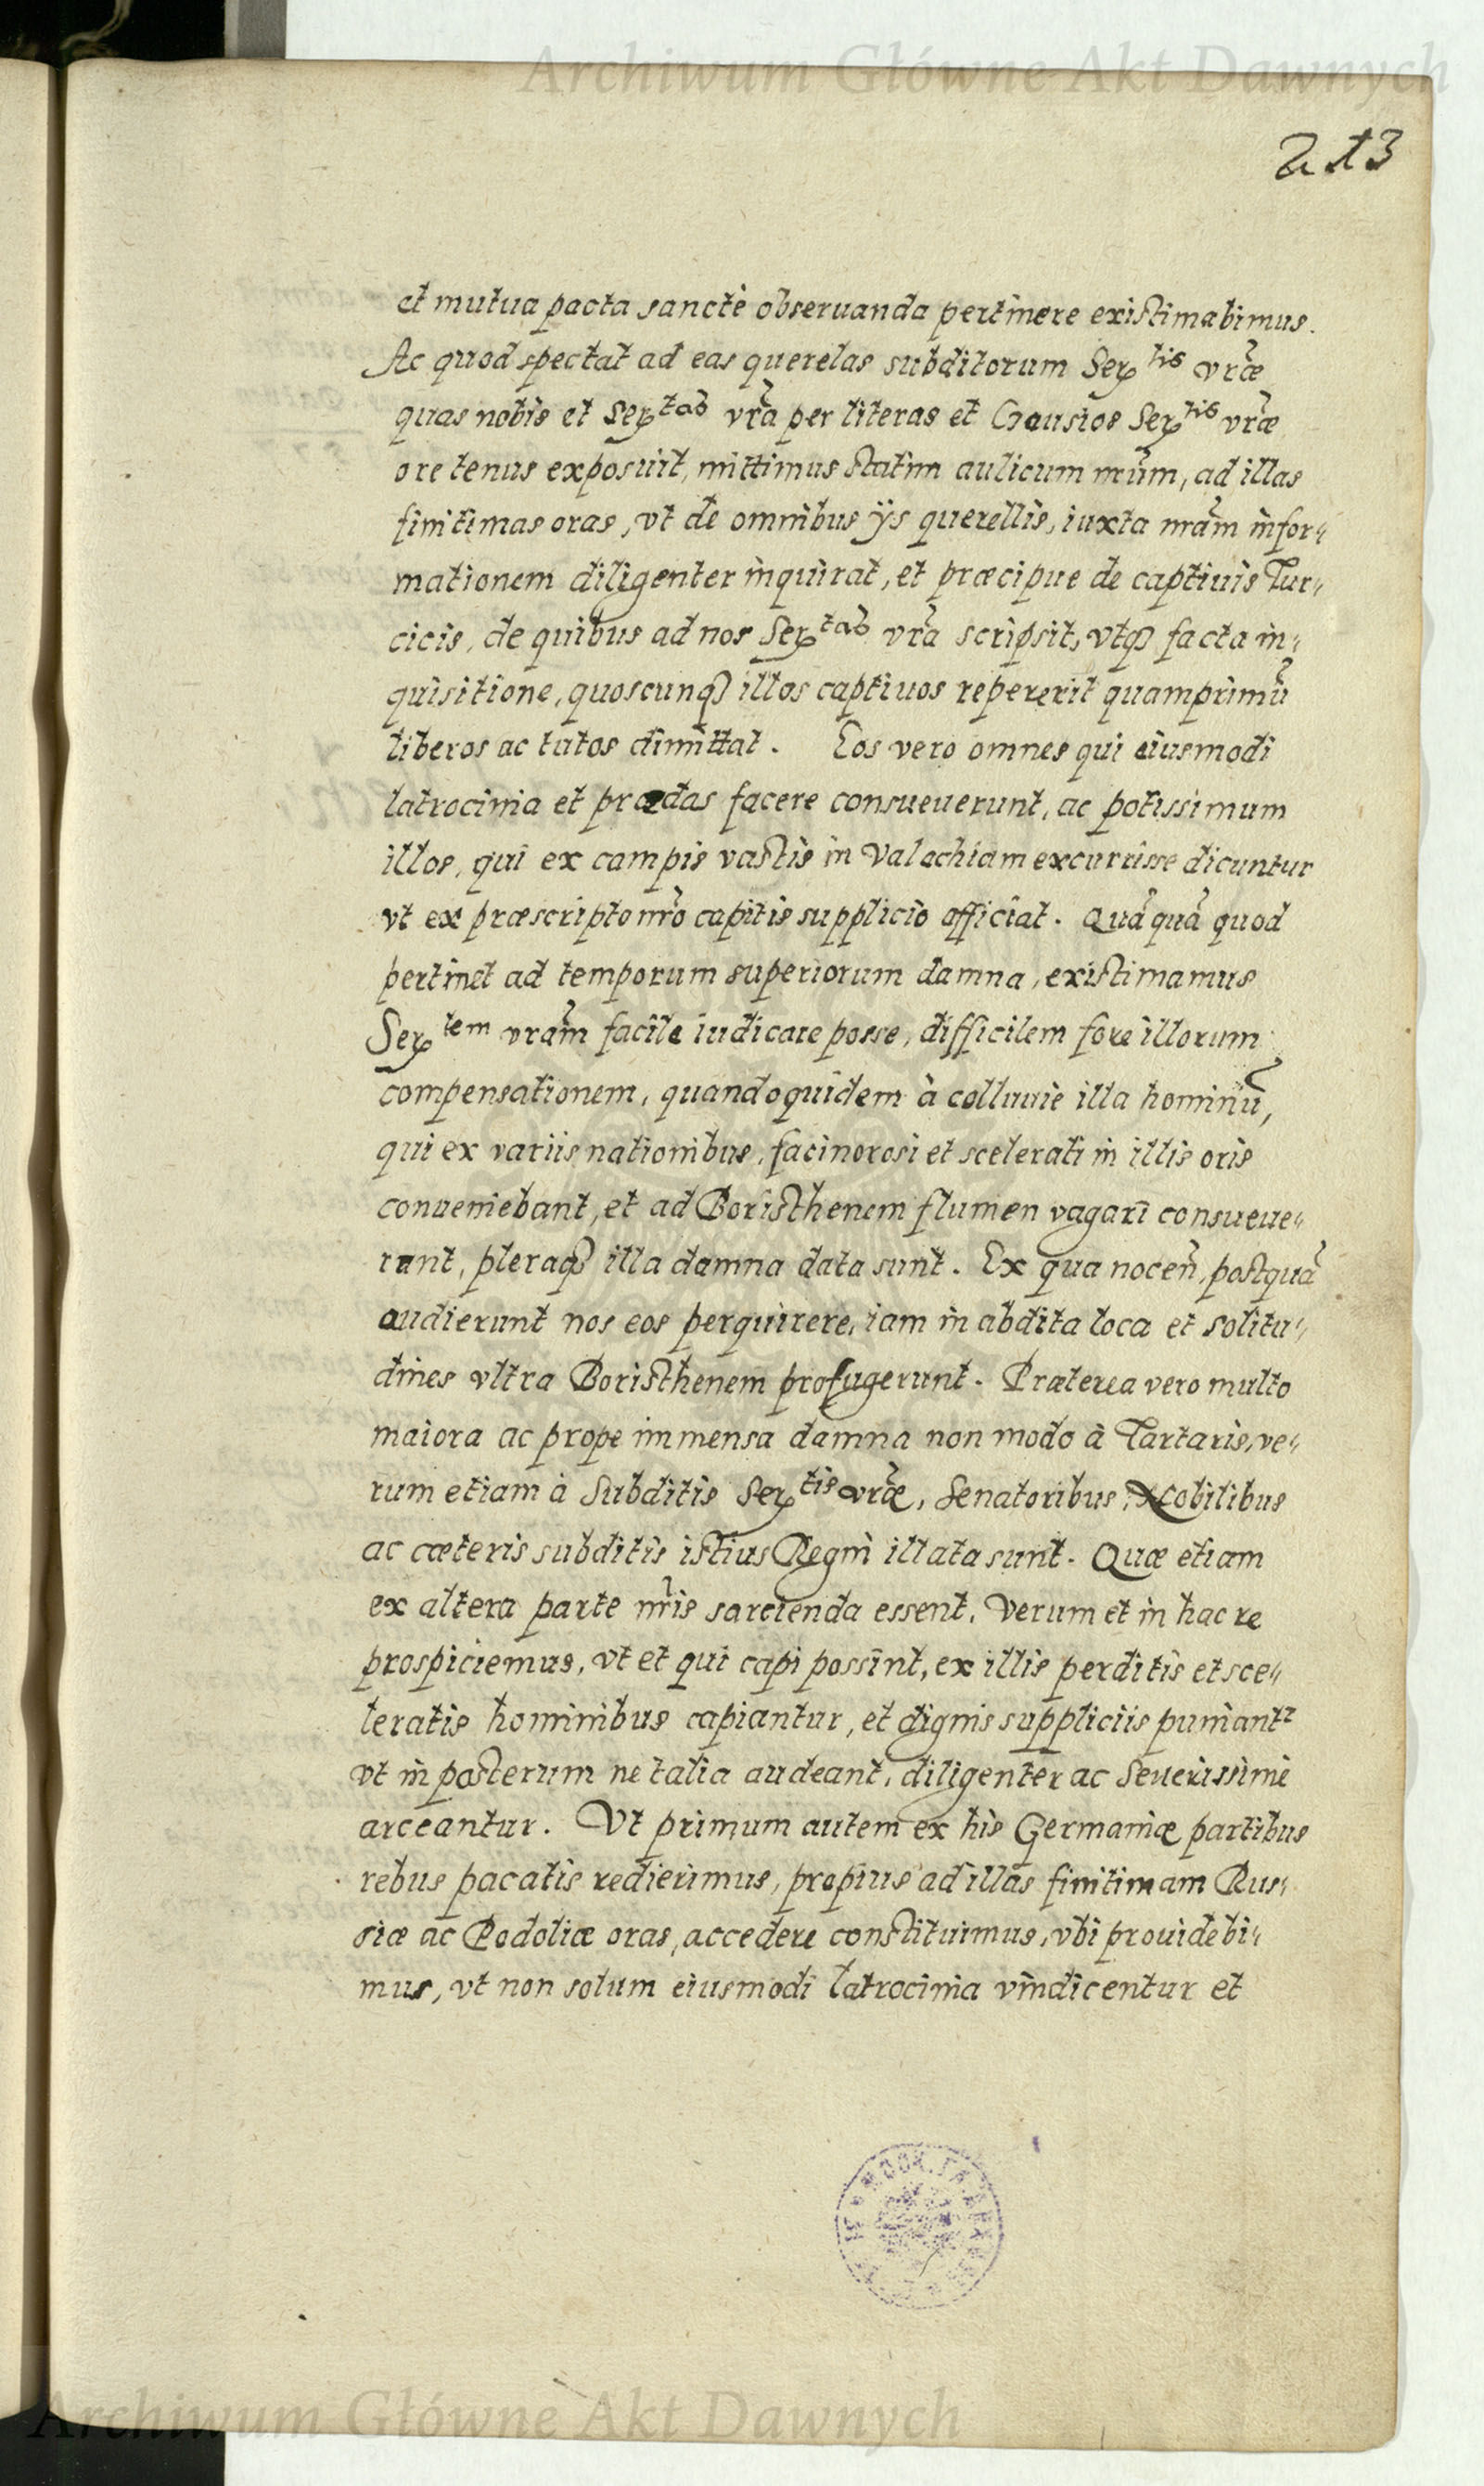 Archiwum Główne Akt Dawnych
213
et mutua pacta sanctè obseruanda pertinere existimabimus.
Ac quod spectat ad eas querelas subditorum Ser^tis vr̃æ
quas nobis et Ser^tas vr̃a per literas et Czausios Ser^tis vr̃æ
ore tenus exposuit, mittimus statim aulicum nr̃um, ad illas
finitimas oras, vt de omnibus ÿs querellis, iuxta nr̃am infor-
mationem diligenter inquirat, et præcipue de captiuis Tur-
cicis, de quibus ad nos Ser^tas vr̃a scripsit, vtq₃ facta in-
quisitione, quoscunq₃ illos captiuos repererit quamprimũ
liberos ac tutos dimittat. Eos vero omnes qui eiusmodi
latrocinia et prædas facere consueuerunt, ac potissimum
illos, qui ex campis vastis in Valachiam excurrisse dicuntur
vt ex præscripto nr̃o capitis supplicio afficiat. Quãquã quod
pertinet ad temporum superiorum damna, existimamus
Ser^tem vr̃am facile iudicare posse, difficilem fore illorum
compensationem, quandoquidem à colluuie illa hominũ,
qui ex variis nationibus, facinorosi et scelerati in illis oris
conueniebant, et ad Boristhenem flumen vagari consueue-
runt, pleraq₃ illa damna data sunt. Ex qua nocen̄, postquã
audierunt nos eos perquirere, iam in abdita loca et solitu-
dines vltra Boristhenem profugerunt. Præterea vero multo
maiora ac prope immensa damna non modo à Tartaris, ve-
rum etiam à Subditis Ser^tis vr̃æ, Senatoribus, Nobilibus
ac cæteris subditis istius Regni illata sunt. Quæ etiam
ex altera parte nr̃is sarcienda essent. Verum et in hac re
prospiciemus, vt et qui capi possint, ex illis perditis et sce-
leratis hominibus capiantur, et dignis suppliciis puniant^r
vt in posterum ne talia audeant, diligenter ac Seuerissimè
arceantur. Vt primum autem ex his Germaniæ partibus
rebus pacatis redierimus, propius ad illas finitimam Rus-
siæ ac Podoliæ oras, accedere constituimus, vbi prouidebi-
mus, vt non solum eiusmodi latrocinia vindicentur et
Archiwum Główne Akt Dawnych